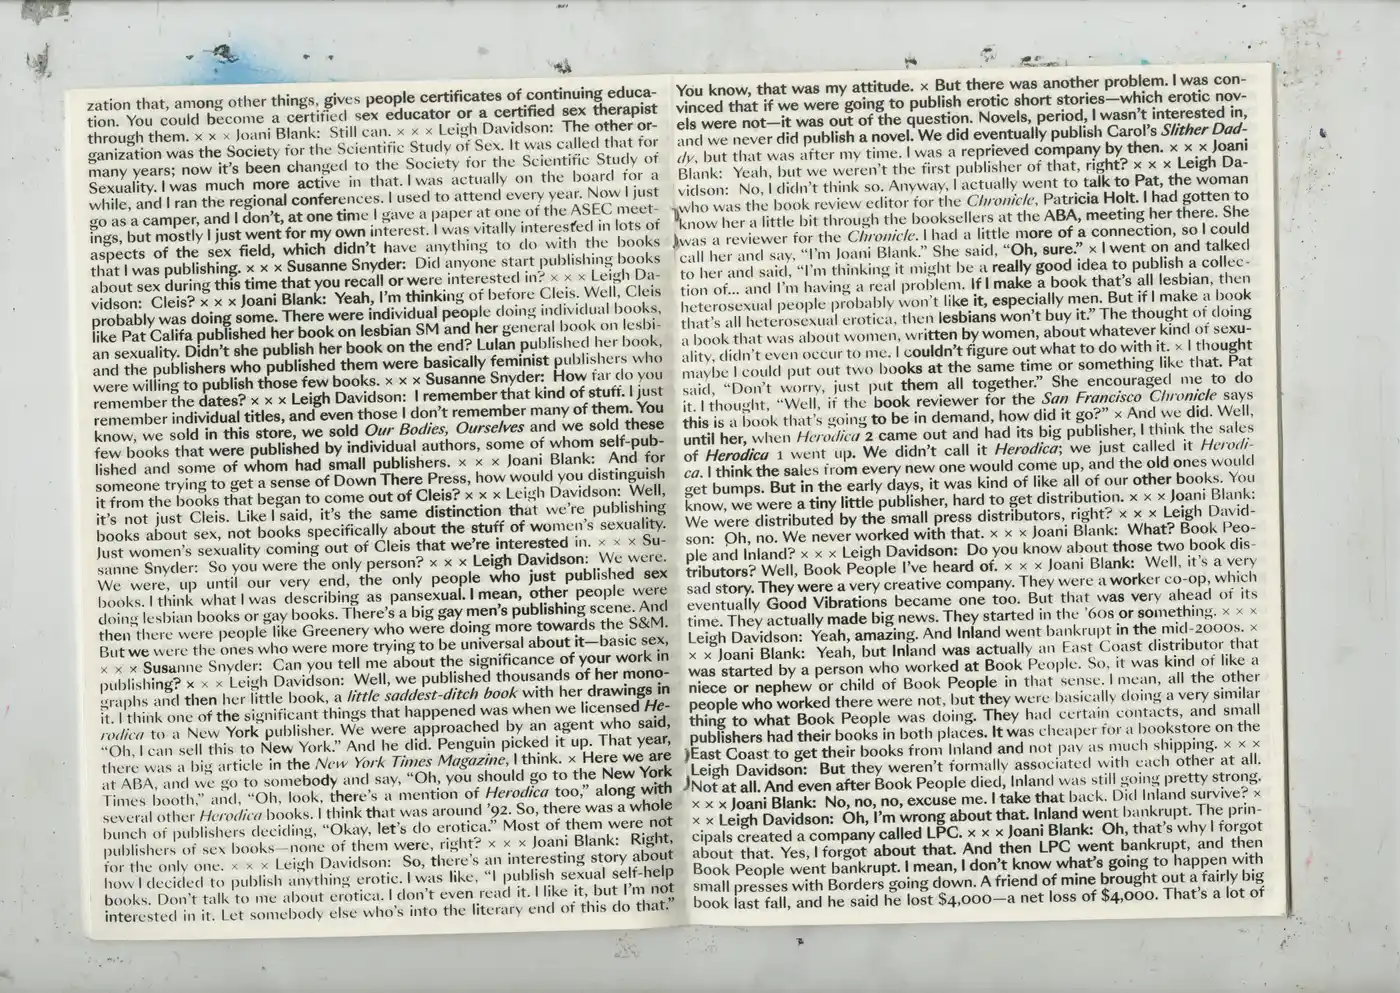 zation that, among other things, gives people certificates of continuing educa-
tion. You could become a certified sex educator or a certified sex therapist
through them. × × × Joani Blank: Still can. × × × Leigh Davidson: The other or-
ganization was the Society for the Scientific Study of Sex. It was called that for
many years; now it's been changed to the Society for the Scientific Study of
Sexuality. I was much more active in that. I was actually on the board for a
while, and I ran the regional conferences. I used to attend every year. Now I just
go as a camper, and I don't, at one time I gave a paper at one of the ASEC meet-
ings, but mostly I just went for my own interest. I was vitally interested in lots of
aspects of the sex field, which didn't have anything to do with the books
that I was publishing. × × × Susanne Snyder: Did anyone start publishing books
about sex during this time that you recall or were interested in? × × × Leigh Da-
vidson: Cleis? × × × Joani Blank: Yeah, I'm thinking of before Cleis. Well, Cleis
probably was doing some. There were individual people doing individual books,
like Pat Califa published her book on lesbian SM and her general book on lesbi-
an sexuality. Didn't she publish her book on the end? Lulan published her book,
and the publishers who published them were basically feminist publishers who
were willing to publish those few books. × × × Susanne Snyder: How far do you
remember the dates? × × × Leigh Davidson: I remember that kind of stuff. I just
remember individual titles, and even those I don't remember many of them. You
know, we sold in this store, we sold Our Bodies, Ourselves and we sold these
few books that were published by individual authors, some of whom self-pub-
lished and some of whom had small publishers. × × × Joani Blank: And for
someone trying to get a sense of Down There Press, how would you distinguish
it from the books that began to come out of Cleis? × × × Leigh Davidson: Well,
it's not just Cleis. Like I said, it's the same distinction that we're publishing
books about sex, not books specifically about the stuff of women's sexuality.
Just women's sexuality coming out of Cleis that we're interested in. × × × Su-
sanne Snyder: So you were the only person? × × × Leigh Davidson: We were.
We were, up until our very end, the only people who just published sex
books. I think what I was describing as pansexual. I mean, other people were
doing lesbian books or gay books. There's a big gay men's publishing scene. And
then there were people like Greenery who were doing more towards the S&M.
But we were the ones who were more trying to be universal about it—basic sex,
× × × Susanne Snyder: Can you tell me about the significance of your work in
publishing? × × × Leigh Davidson: Well, we published thousands of her mono-
graphs and then her little book, a little saddest-ditch book with her drawings in
it. I think one of the significant things that happened was when we licensed He-
rodica to a New York publisher. We were approached by an agent who said,
"Oh, I can sell this to New York." And he did. Penguin picked it up. That year,
there was a big article in the New York Times Magazine, I think. × Here we are
at ABA, and we go to somebody and say, "Oh, you should go to the New York
Times booth," and, "Oh, look, there's a mention of Herodica too," along with
several other Herodica books. I think that was around '92. So, there was a whole
bunch of publishers deciding, "Okay, let's do erotica." Most of them were not
publishers of sex books—none of them were, right? × × × Joani Blank: Right,
for the only one. × × × Leigh Davidson: So, there's an interesting story about
how I decided to publish anything erotic. I was like, "I publish sexual self-help
books. Don't talk to me about erotica. I don't even read it. I like it, but I'm not
interested in it. Let somebody else who's into the literary end of this do that."
You know, that was my attitude. × But there was another problem. I was con-
vinced that if we were going to publish erotic short stories—which erotic nov-
els were not—it was out of the question. Novels, period, I wasn't interested in,
and we never did publish a novel. We did eventually publish Carol's Slither Dad-
dy, but that was after my time. I was a reprieved company by then. × × × Joani
Blank: Yeah, but we weren't the first publisher of that, right? × × × Leigh Da-
vidson: No, I didn't think so. Anyway, I actually went to talk to Pat, the woman
who was the book review editor for the Chronicle, Patricia Holt. I had gotten to
know her a little bit through the booksellers at the ABA, meeting her there. She
was a reviewer for the Chronicle. I had a little more of a connection, so I could
call her and say, "I'm Joani Blank." She said, "Oh, sure." × I went on and talked
to her and said, "I'm thinking it might be a really good idea to publish a collec-
tion of... and I'm having a real problem. If I make a book that's all lesbian, then
heterosexual people probably won't like it, especially men. But if I make a book
that's all heterosexual erotica, then lesbians won't buy it." The thought of doing
a book that was about women, written by women, about whatever kind of sexu-
ality, didn't even occur to me. I couldn't figure out what to do with it. × I thought
maybe I could put out two books at the same time or something like that. Pat
said, "Don't worry, just put them all together." She encouraged me to do
it. I thought, "Well, if the book reviewer for the San Francisco Chronicle says
this is a book that's going to be in demand, how did it go?" × And we did. Well,
until her, when Herodica 2 came out and had its big publisher, I think the sales
of Herodica 1 went up. We didn't call it Herodica; we just called it Herodi-
ca. I think the sales from every new one would come up, and the old ones would
get bumps. But in the early days, it was kind of like all of our other books. You
know, we were a tiny little publisher, hard to get distribution. × × × Joani Blank:
We were distributed by the small press distributors, right? × × × Leigh David-
son: Oh, no. We never worked with that. × × × Joani Blank: What? Book Peo-
ple and Inland? × × × Leigh Davidson: Do you know about those two book dis-
tributors? Well, Book People I've heard of. × × × Joani Blank: Well, it's a very
sad story. They were a very creative company. They were a worker co-op, which
eventually Good Vibrations became one too. But that was very ahead of its
time. They actually made big news. They started in the '60s or something. × × ×
Leigh Davidson: Yeah, amazing. And Inland went bankrupt in the mid-2000s. ×
× × Joani Blank: Yeah, but Inland was actually an East Coast distributor that
was started by a person who worked at Book People. So, it was kind of like a
niece or nephew or child of Book People in that sense. I mean, all the other
people who worked there were not, but they were basically doing a very similar
thing to what Book People was doing. They had certain contacts, and small
publishers had their books in both places. It was cheaper for a bookstore on the
East Coast to get their books from Inland and not pay as much shipping. × × ×
Leigh Davidson: But they weren't formally associated with each other at all.
Not at all. And even after Book People died, Inland was still going pretty strong.
× × × Joani Blank: No, no, no, excuse me. I take that back. Did Inland survive? ×
× × Leigh Davidson: Oh, I'm wrong about that. Inland went bankrupt. The prin-
cipals created a company called LPC. × × × Joani Blank: Oh, that's why I forgot
about that. Yes, I forgot about that. And then LPC went bankrupt, and then
Book People went bankrupt. I mean, I don't know what's going to happen with
small presses with Borders going down. A friend of mine brought out a fairly big
book last fall, and he said he lost $4,000—a net loss of $4,000. That's a lot of